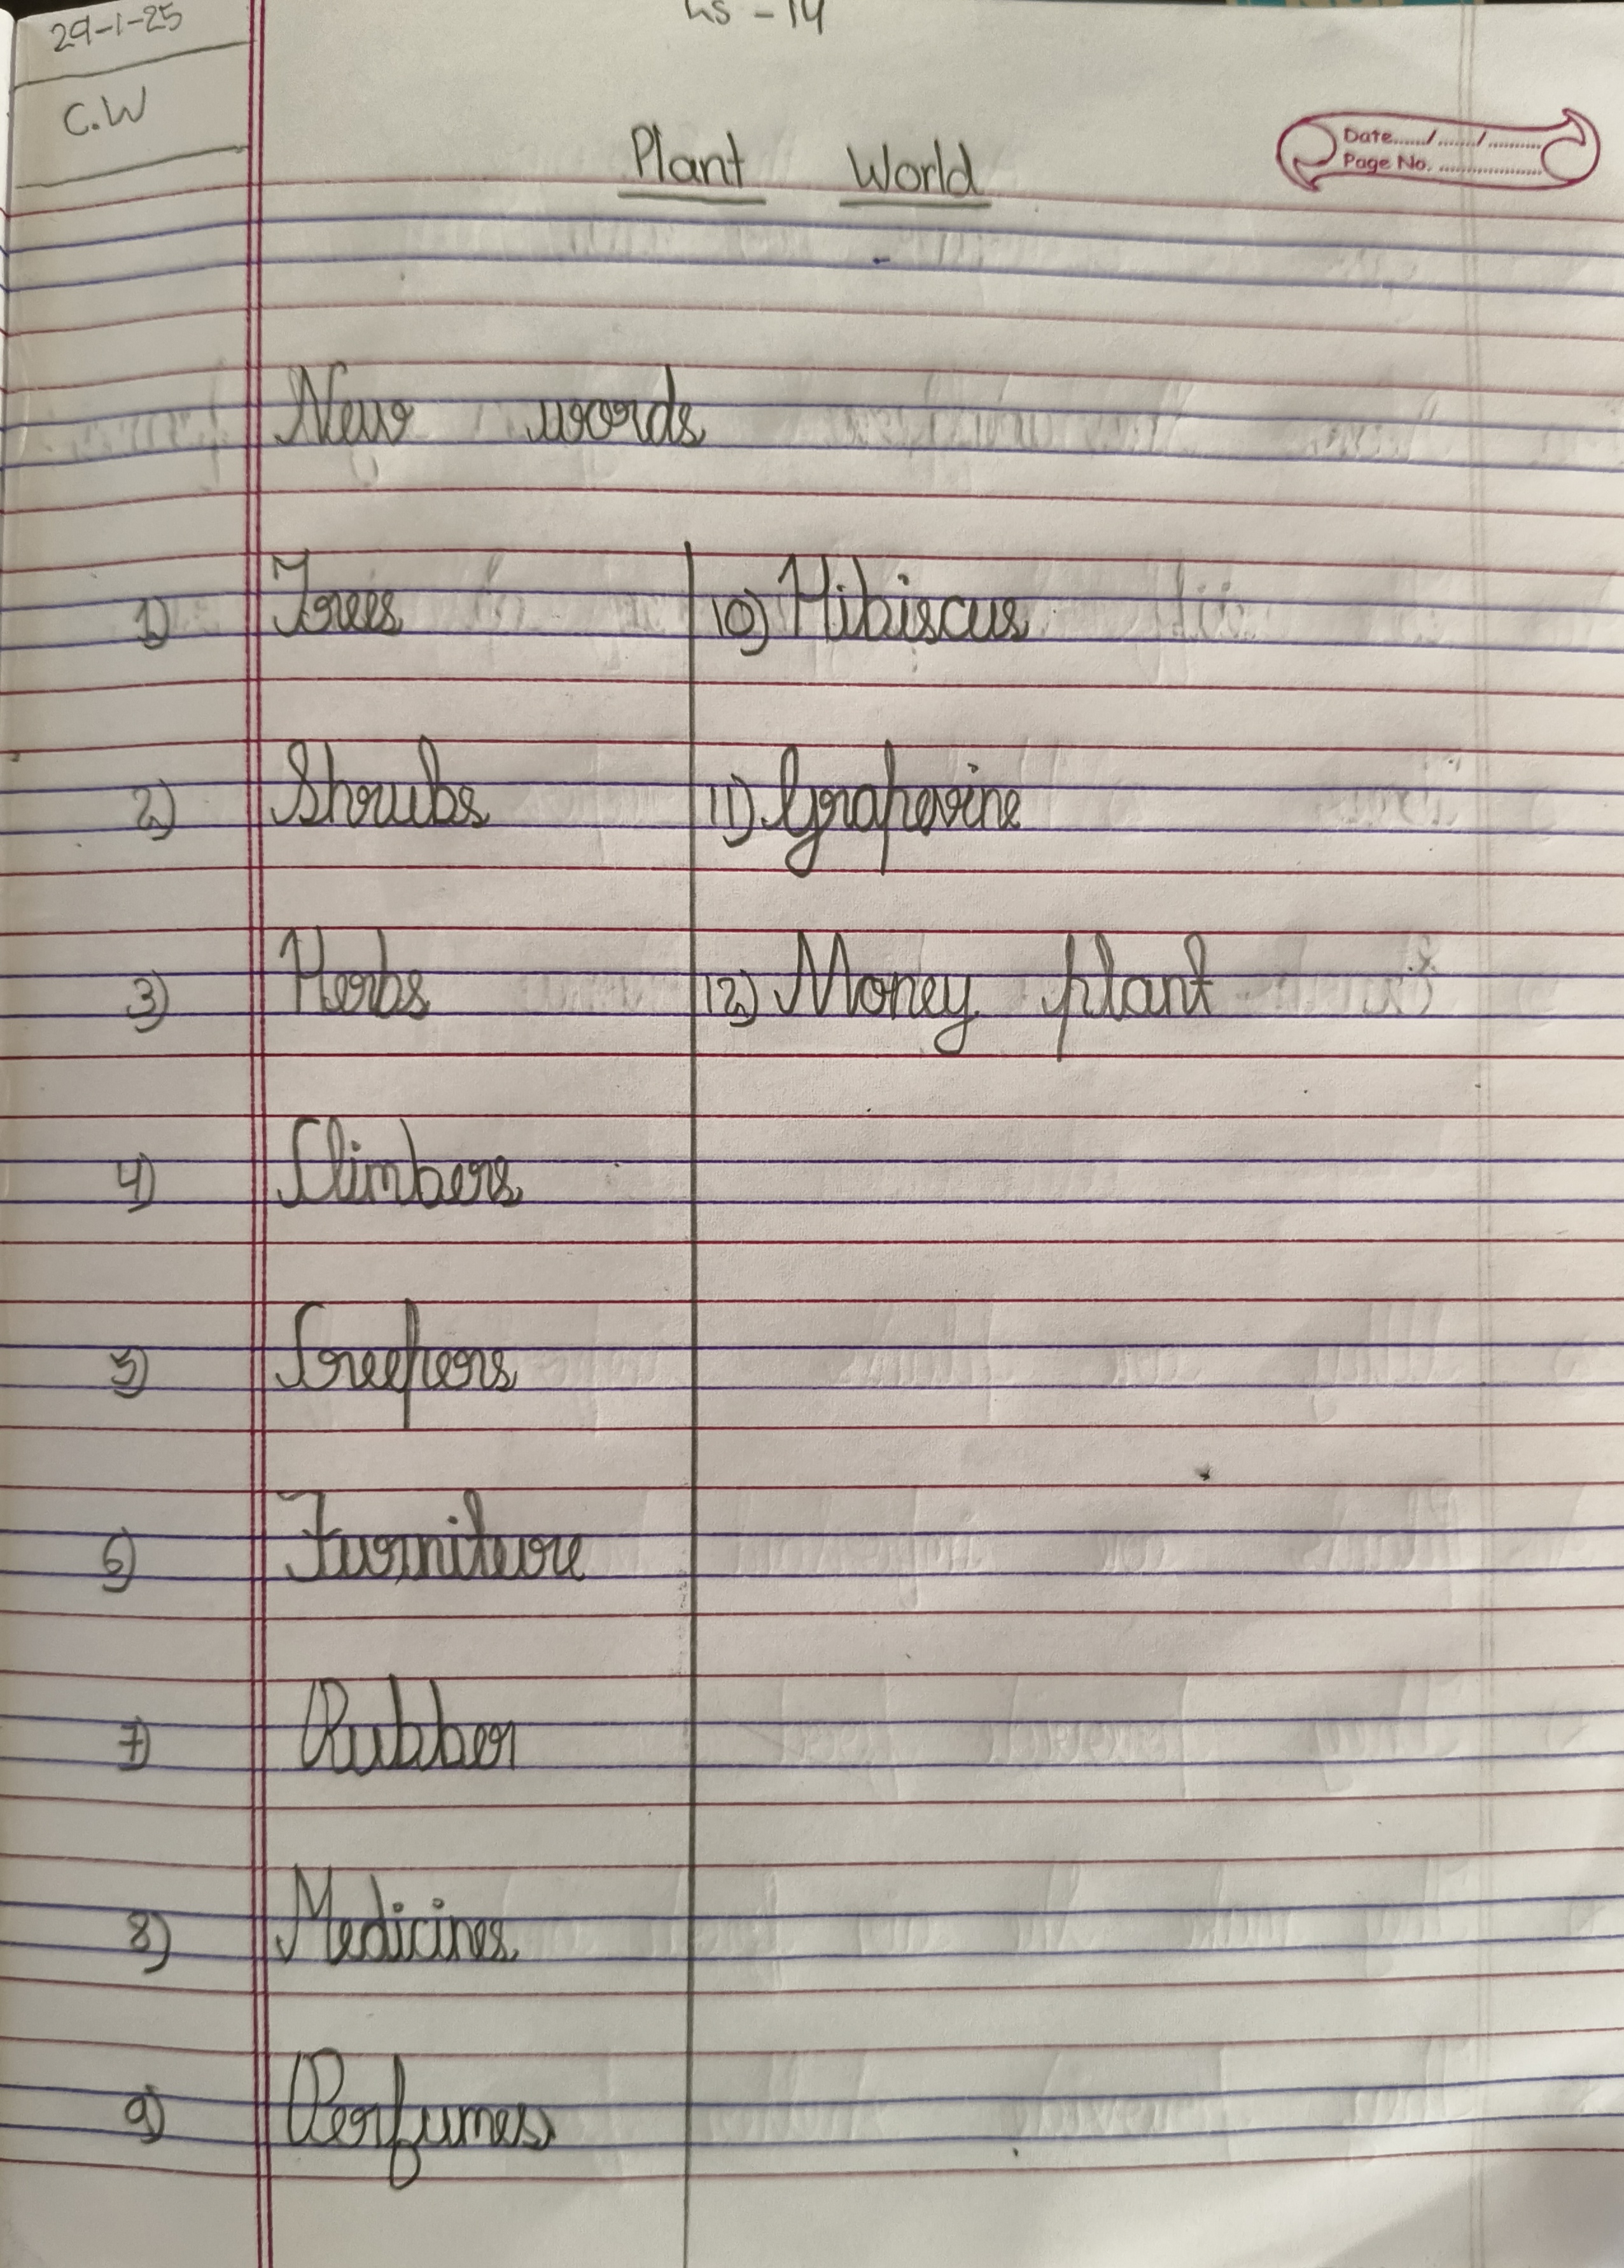 29-1-25
Ls - 14
C.W
Plant World
Date....../......./..........
Page No. ....................
New words
1) Trees
2) Shrubs
3) Herbs
4) Climbers
5) Creepers
6) Furniture
7) Rubber
8) Medicines
9) Perfumes
10) Hibiscus
11) Grapevine
12) Money plant